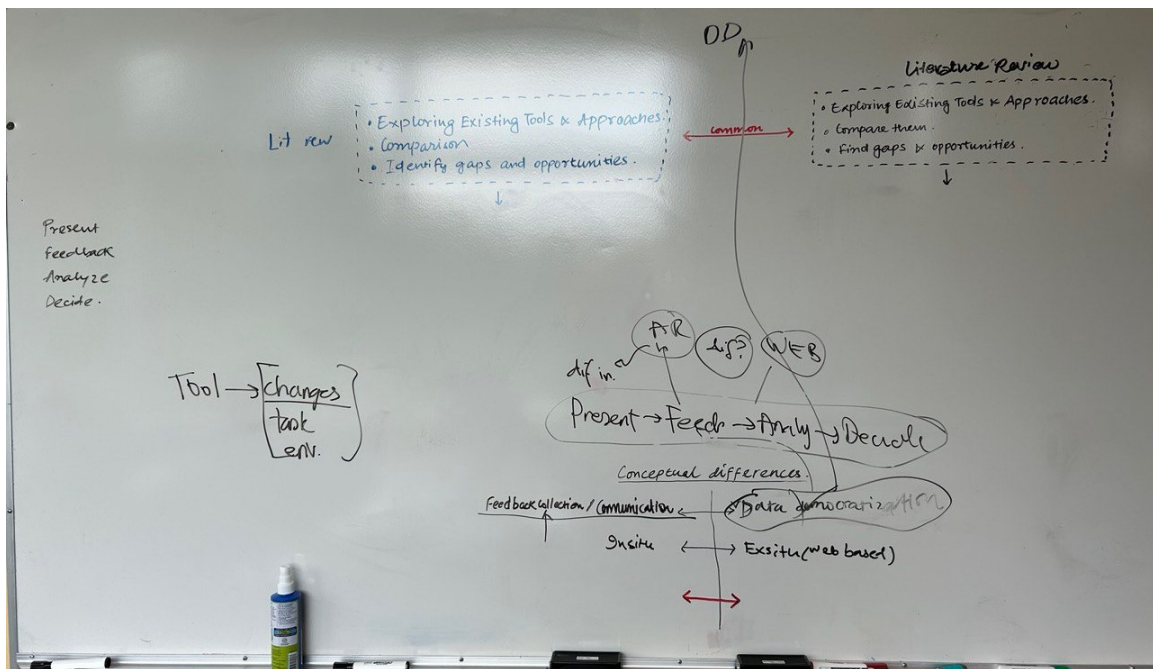 DD
Literature Review
• Exploring Existing Tools & Approaches.
• Compare them.
• Find gaps & opportunities.
common
Lit rew
• Exploring Existing Tools & Approaches.
• Comparison
• Identify gaps and opportunities.
Present
Feedback
Analyze
Decide.
Tool → changes
task
env.
AR
dif?
WEB
dif in.
Present → Feedb → Analy → Decide
Conceptual differences.
Feedback collection / Communication
Data democratization
Insitu
Exsitu (web based)